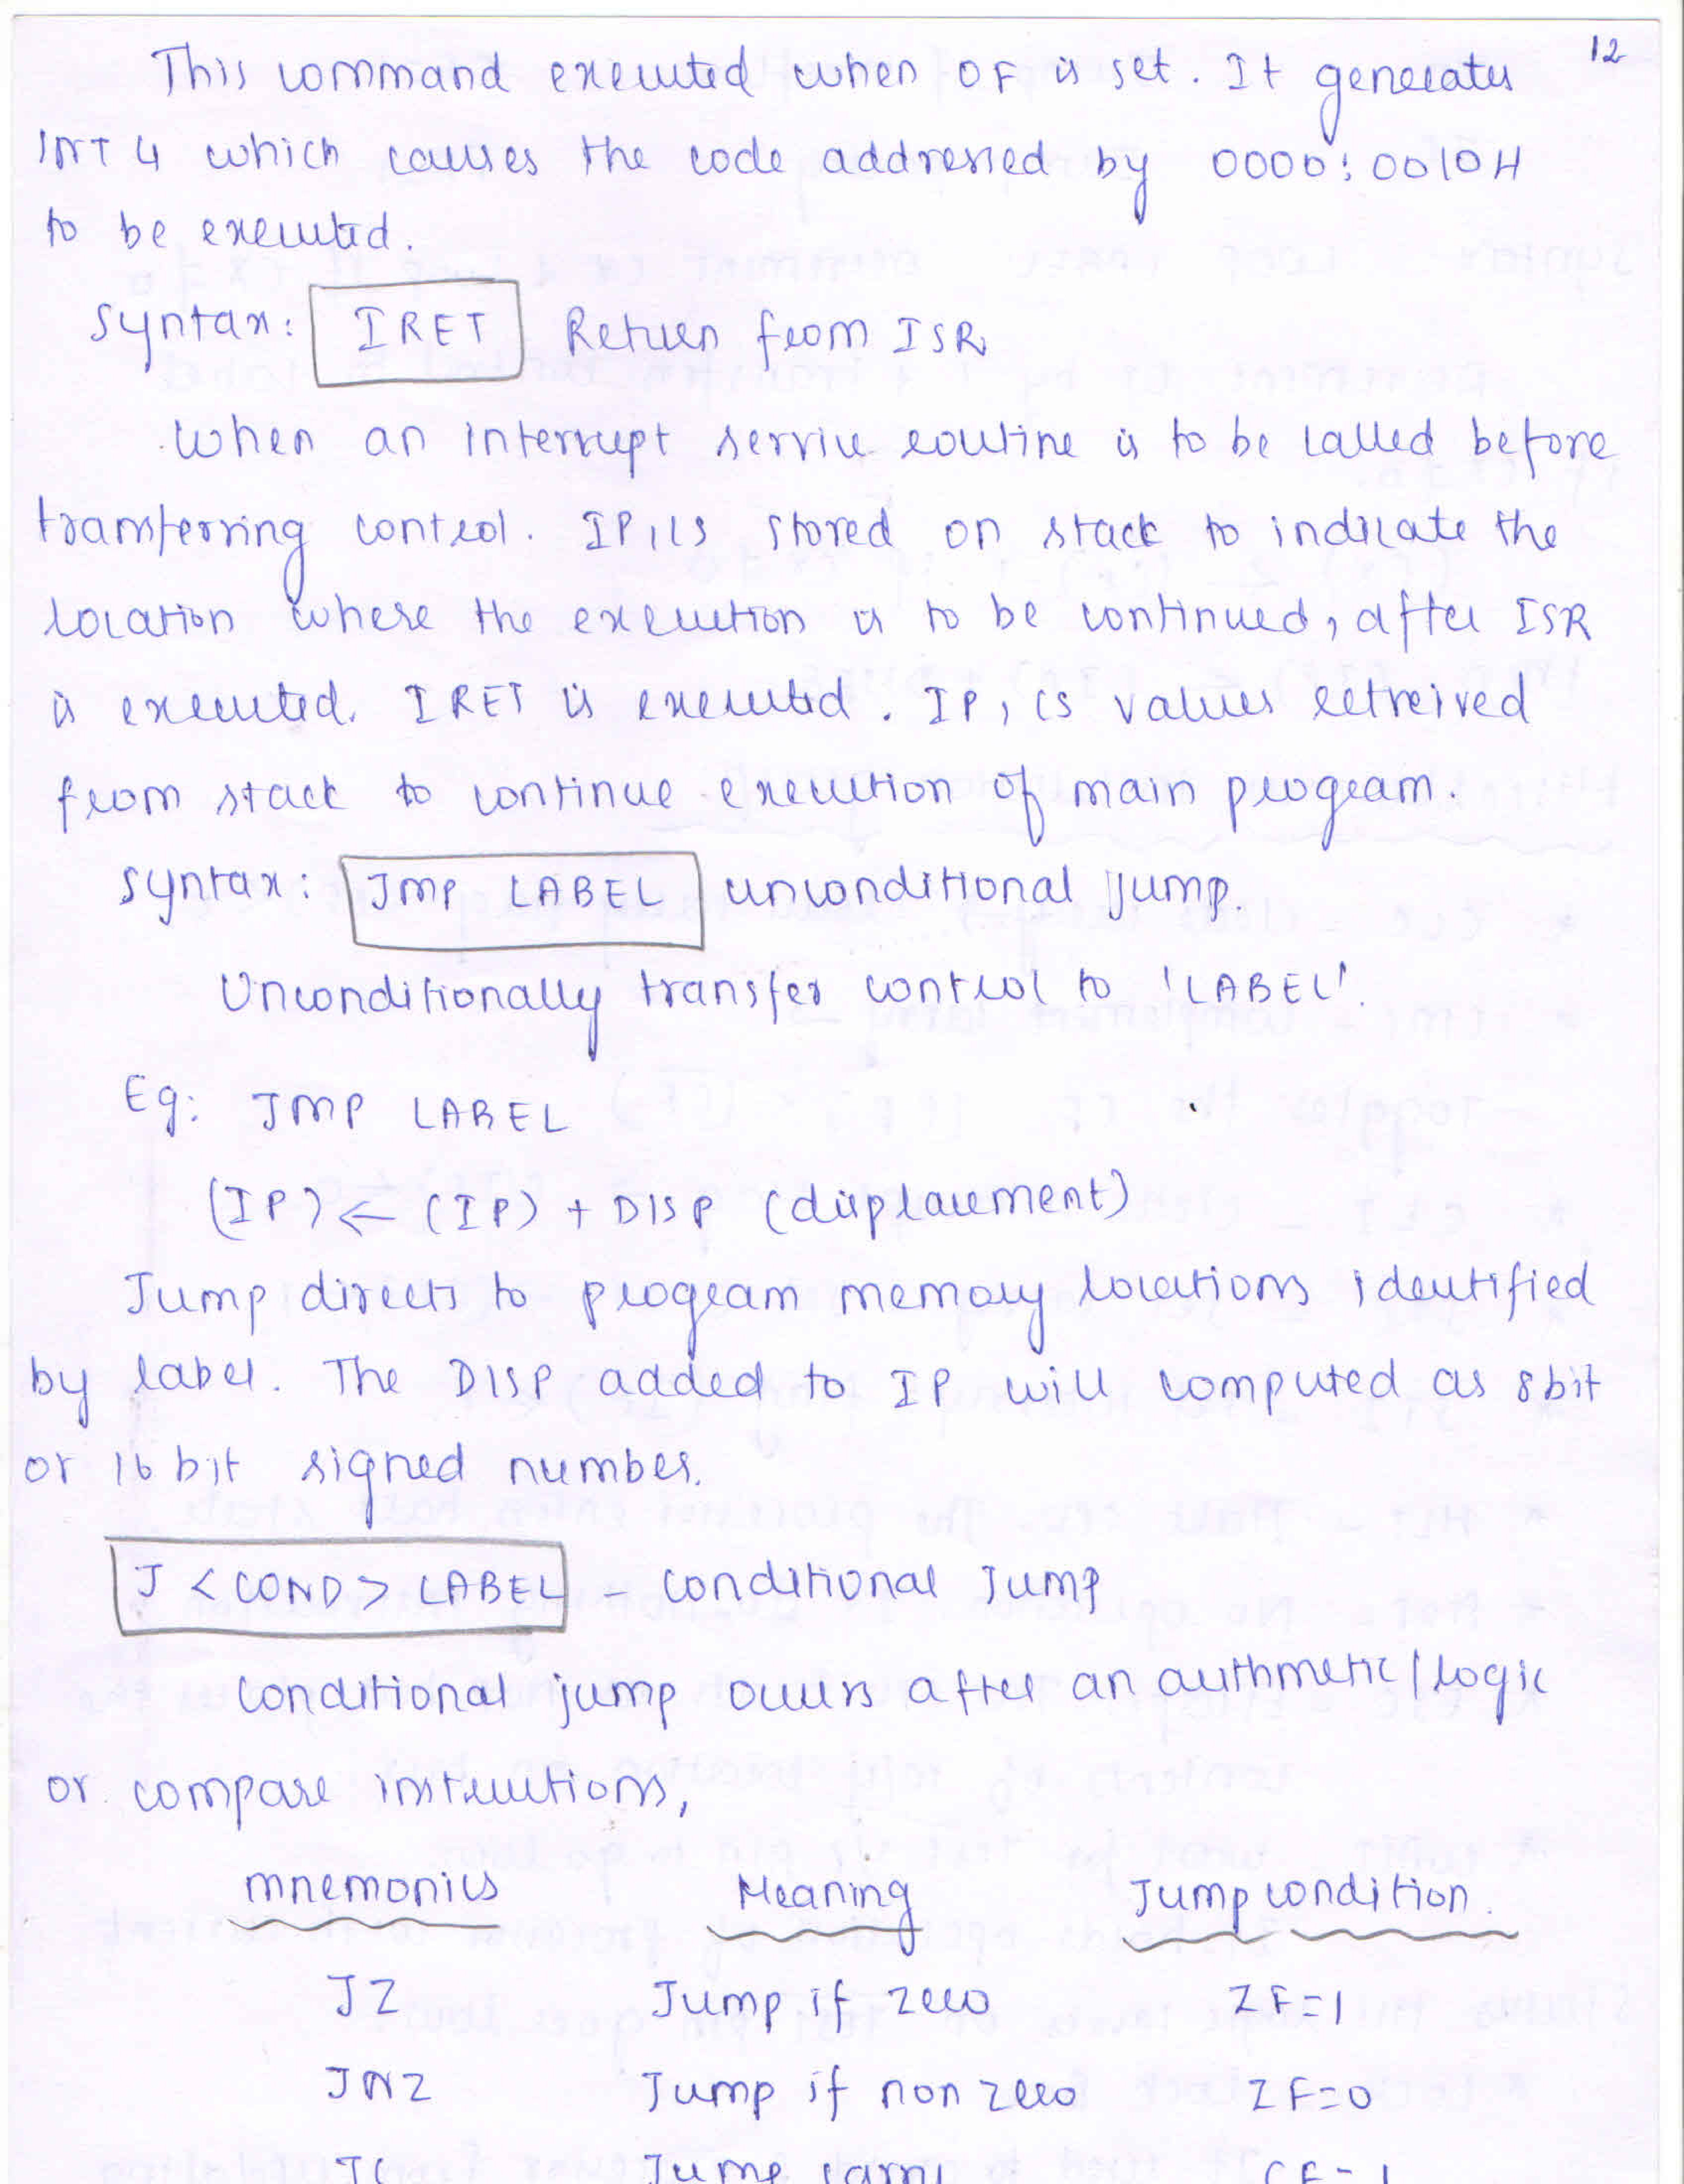 12
This command executed when OF is set. It generates
INT 4 which causes the code addressed by 0000:0010H
to be executed.
Syntax: IRET Return from ISR
When an interrupt service routine is to be called before
transferring control. IP, CS stored on stack to indicate the
location where the execution is to be continued, after ISR
is executed. IRET is executed. IP, CS values retreived
from stack to continue execution of main program.
Syntax: JMP LABEL unconditional jump.
Unconditionally transfer control to 'LABEL'.
Eg: JMP LABEL
(IP) ← (IP) + DISP (displacement)
Jump directs to program memory locations identified
by label. The DISP added to IP will computed as 8bit
or 16 bit signed number.
J <COND> LABEL - conditional Jump
Conditional jump occurs after an arithmetic/logic
or compare instructions,
mnemonics Meaning Jump condition.
JZ Jump if zero ZF=1
JNZ Jump if non zero ZF=0
JC Jump carry CF=1